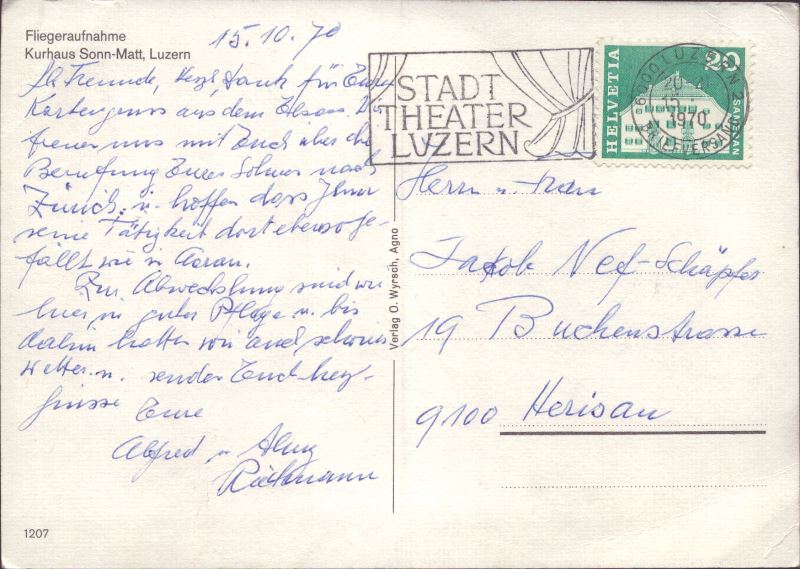 Fliegeraufnahme
Kurhaus Sonn-Matt, Luzern
15.10.70
Lb Freunde, herzl. Dank für Eure
Kartengruss aus dem Elsass. Wir
freuen uns mit Euch über die
Berufung Eures Sohnes nach
Zürich u. hoffen dass Ihm
seine Tätigkeit dort ebenso ge-
fällt wie in Aarau.
Zur Abwechslung sind wir
hier in guter Pflege u. bis
dahin hatten wir auch schönes
Wetter u. senden Euch herz-
grüsse
Eure
Alfred u.
STADT
THEATER
LUZERN
HELVETIA
20
6000 LUZERN 2
1970
BRIEFVERSAND
Herrn u. Frau
Jakob Nef-Schäpfer
19 Buchenstrasse
9100 Herisau
Verlag O. Wyrsch, Agno
1207